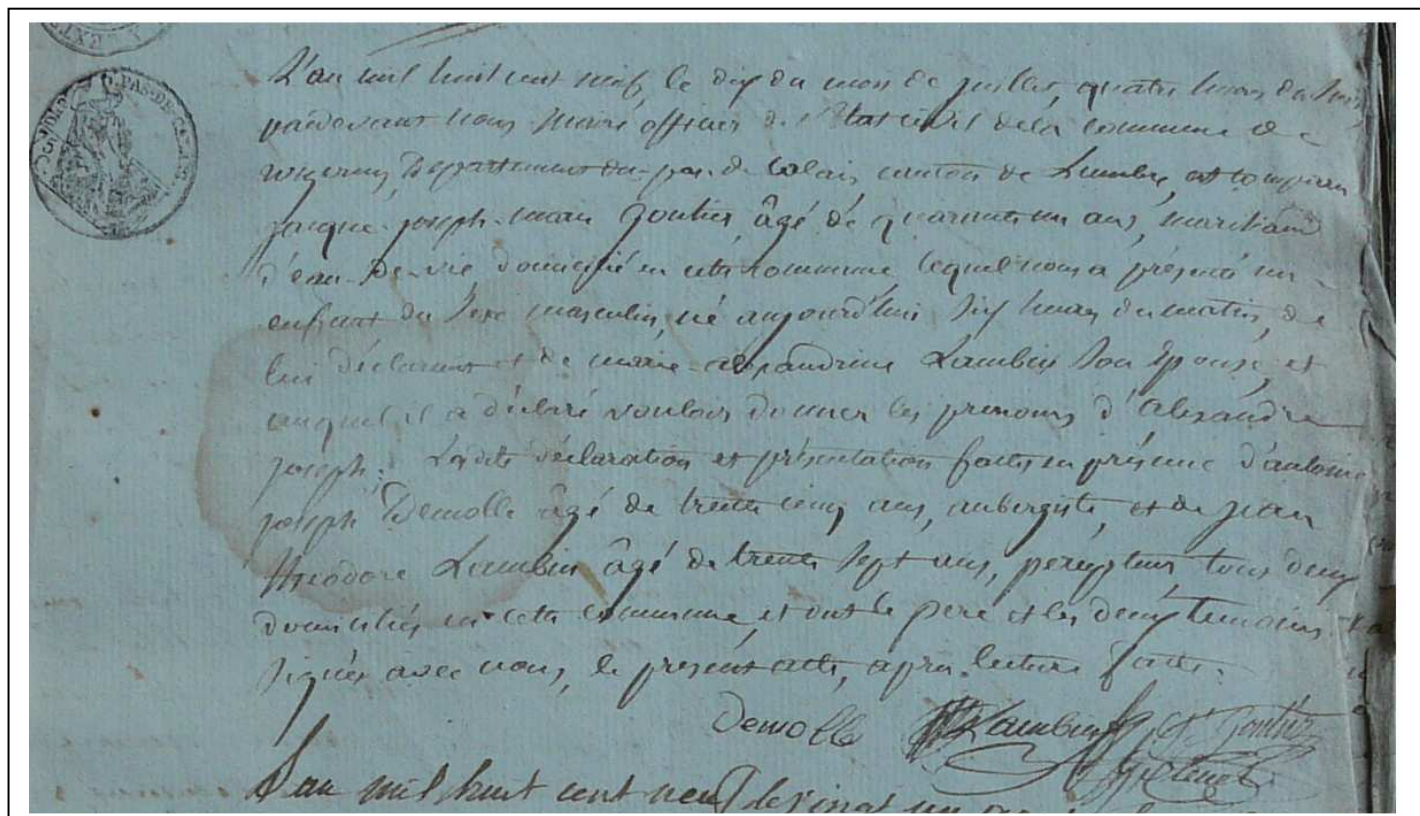 PAS-DE-CALAIS
L'an mil huit cent neuf, le dix du mois de juillet, quatre heures du soir
pardevant nous Maire officier de l'Etat civil de la commune de
wizernes, Département du pas-de Calais, canton de Lumbre, est comparu
jacque-joseph-marie Gontier, âgé de quarante un ans, marchand
d'eau-de-vie domicilié en cette commune lequel nous a présenté un
enfant du sexe masculin, né aujourd'hui six heures du matin, de
lui déclarant et de marie-alexandrine Lambin son épouse, et
auquel il a déclaré vouloir donner les prenoms d'alexandre
joseph; Lesdites déclaration et présentation faites en présence d'antoine
joseph Demolle âgé de trente cinq ans, aubergiste, et de jean
théodore Lambin âgé de trente sept ans, percepteur, tous deux
domiciliés en cette commune, et ont le pere et les deux temoins
signés avec nous, le présent acte, après lecture faite.
Demolle Lambin Gontier
L'an mil huit cent neuf le vingt un